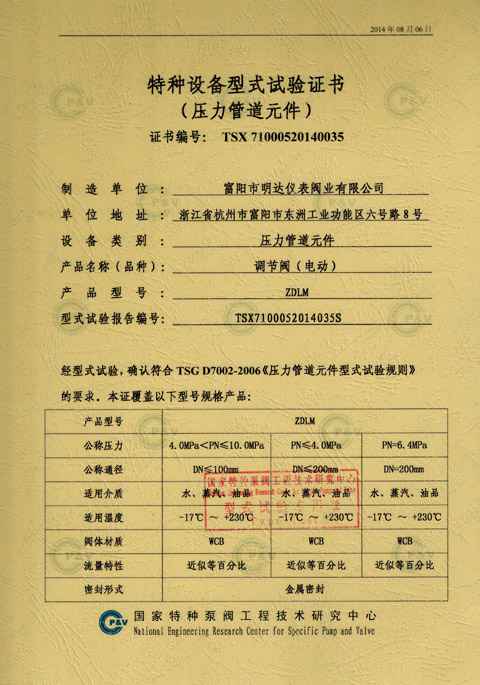 2014年08月06日
特种设备型式试验证书
(压力管道元件)
证书编号： TSX 71000520140035
制造单位： 富阳市明达仪表阀业有限公司
单位地址： 浙江省杭州市富阳市东洲工业功能区六号路8号
设备类别： 压力管道元件
产品名称(品种)： 调节阀(电动)
产品型号： ZDLM
型式试验报告编号： TSX7100052014035S
经型式试验，确认符合TSG D7002-2006《压力管道元件型式试验规则》
的要求。本证覆盖以下型号规格产品：
产品型号 ZDLM
公称压力 4.0MPa<PN≤10.0MPa PN≤4.0MPa PN=6.4MPa
公称通径 DN≤100mm DN≤200mm DN=200mm
国家特种泵阀工程技术研究中心
适用介质 水、蒸汽、油品 水、蒸汽、油品 水、蒸汽、油品
型式试验
适用温度 -17℃ ~ +230℃ -17℃ ~ +230℃ -17℃ ~ +230℃
阀体材质 WCB WCB WCB
流量特性 近似等百分比 近似等百分比 近似等百分比
密封形式 金属密封
P&V 国家特种泵阀工程技术研究中心
National Engineering Research Center for Specific Pump and Valve